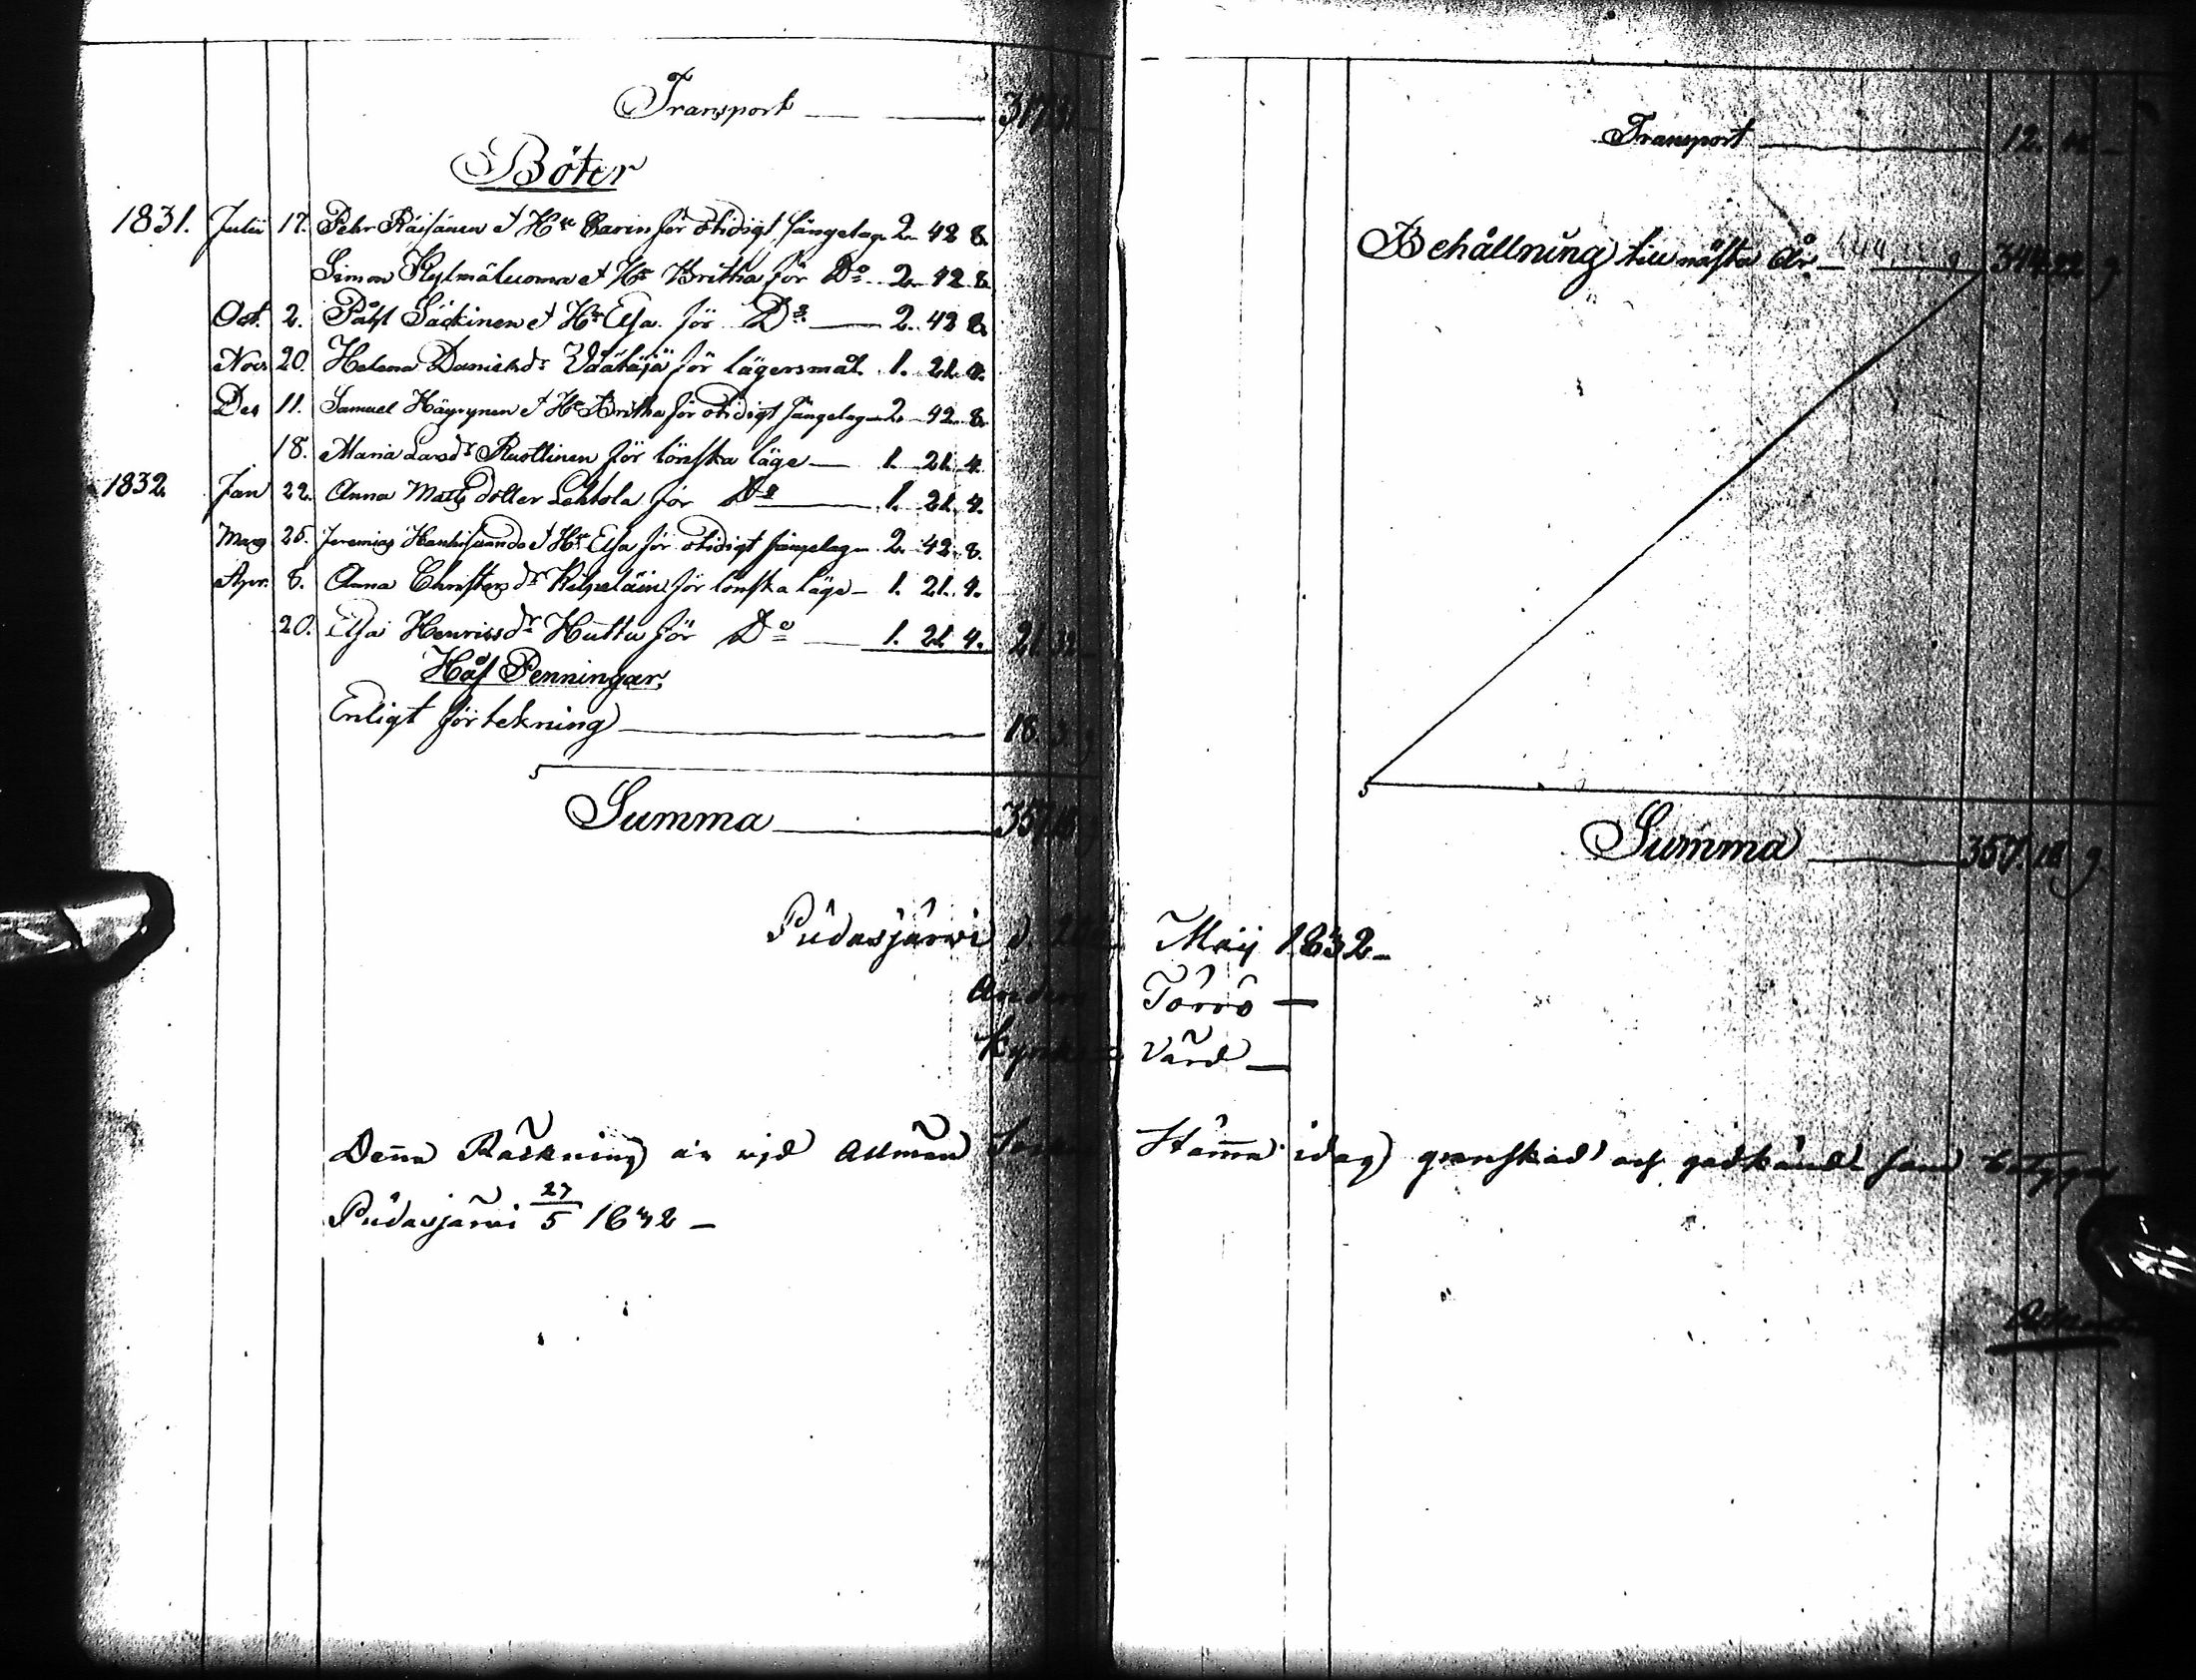 Transport
Böter
1831. Julii 17. Pehr Räisänen et Hu Carin för otidigt sängelag 2. 42 8.
Simon et Hu Britha för Do 2. 42. 8.
Oct. 2. Påhl Säckinen et Hu Elsa för Do 2. 42 8.
Nov. 20. Helena Danielsdr Väätäjä för lägersmål 1. 21. 4.
Dec 11. Samuel Häyrynen et Hu Britha för otidigt sängelag 2. 42. 8.
18. Maria Larsdr Ruottinen för lönska läge 1. 21. 4.
1832. Jan 22. Anna Matsdotter Lehtola för Do 1. 21. 4.
Mars 25. Jeremias et Hu Elsa för otidigt sängelag 2. 42. 8.
Apr. 8. Anna Christersdr Kilpeläin för lönska läge 1. 21. 4.
20. Elsa Henricsdr Huttu för Do 1. 21. 4. 21. 32
Håf Penningar.
Enligt förtekning 18. 3. 9
Summa 357. 18 9
Transport 12.
Behållning till nästa År 344. 22 9
Summa 357. 18 9.
Pudasjärvi d. Maij 1832
Anders Törrö
Kyrko Värd
Denna Räkning är wid Allmän Stämma idag granskad och godkänd som betygar
Pudasjärvi 27/5 1832